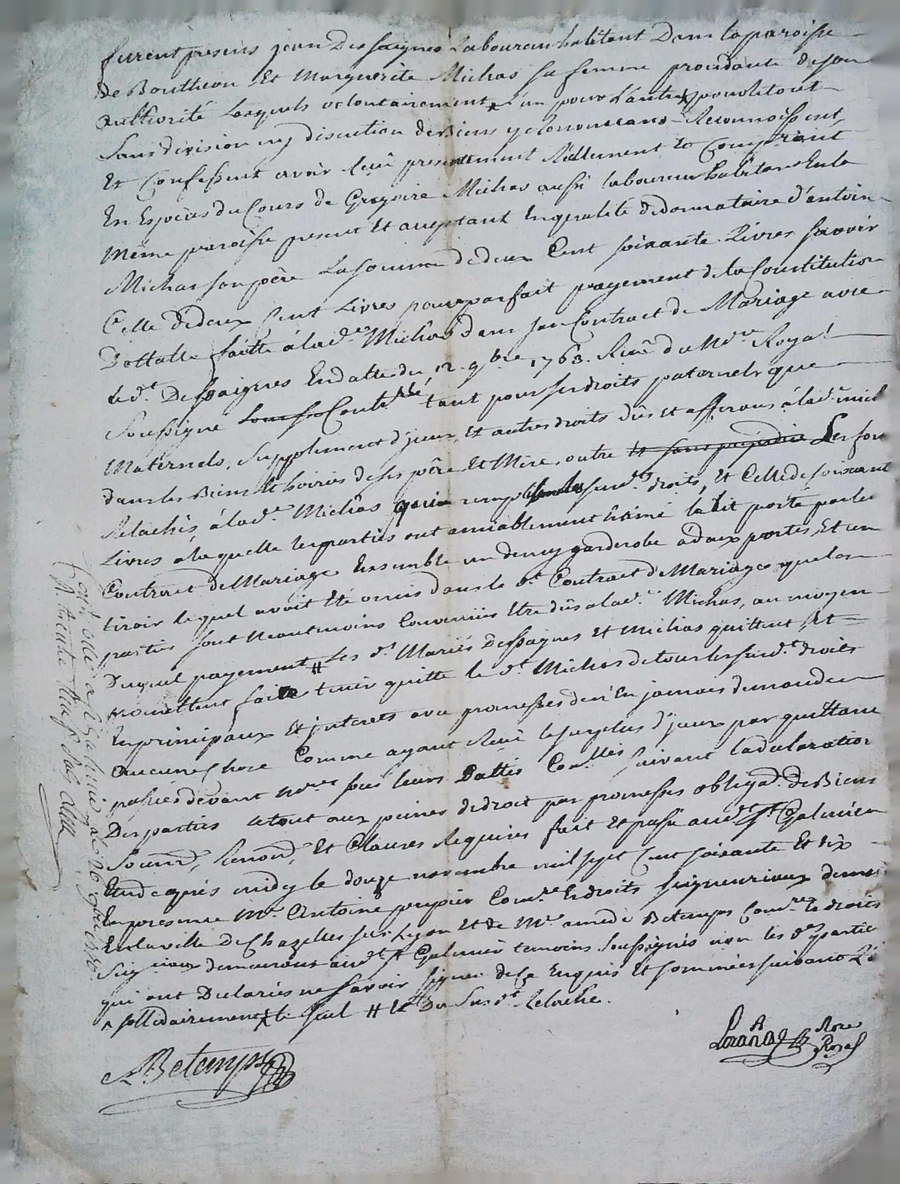 furent presens jean Dessaignes Laboureur habitant Dans la paroisse
de Boutheon Et Marguerite Michas sa femme procedante de son
authorité Lesquels volontairement l'un pour l'autre pour le tout
Sans division ny discution de Biens y Renonceans Reconnoissent
Et Confessent avoir Reçu presentement Réellement Et Comptant
En Espèces du Cours de Gregoire Michas aussi laboureur habitant En la
Même paroisse present Et acceptant En qualité de donnataire d'antoine
Michas son père La somme de deux Cent soixante Livres savoir
Celle de deux Cent Livres pour parfait payement de la Constitution
Dottalle faitte à lad.e Michas dans son Contract de Mariage avec
led.t Dessaignes En datte du 12. 9.bre 1763. Reçu du No.re Royal
Soussigné Controllé, tant pour ses droits paternels que
Maternels, Supplement d'iceux, Et autres droits dûs et afferans à lad.e Mich
dans les Biens Et hoiries de ses père Et Mère, outre et sans prejudice Les fon
Relachés, à lad.e Michas susd.ts droits, et Celle de soixante
Livres a laquelle les parties ont amiablement Estimé le lit porté par le
Contract de Mariage Ensemble un demy garderobe à deux portes, Et un
tiroir lequel avoit Eté omis dans le d.t Contract de Mariage que les
parties sont Neantmoins Convenues Etre dûs a lad.e Michas, au moyen
Duquel payement # Les d. Mariés Dessagnes et Michas quittent, Et
promettent faire tenir quitte le d.t Michas de tous les susd.t droits
En principaux et interets avec promesses de n'En jamais demander
aucune Chose Comme ayant Reçu le surplus d'iceux par quittance
passées devant No.res sous leurs Dattes Con.lles suivant la declaration
Des parties Le tout aux peines de droit par promesses obliga.ons de Biens
Soum.on, Renon.on, Et Clauses Requises fait Et passé aud.t S.t Galmier
Etude après midy le douze novembre mil sept Cent soixante Et dix
En presence M.e Antoine peupier Com.re Es droits seigneuriaux demeu
En la ville de Chazelles sur Lyon et de M.e amedé Betemps Com.re Es droits
Seigneuriaux demeurant aud.t S.t Galmier temoins Soussignés non les d.es parties
qui ont Declarées ne savoir signer de ce Enquis Et sommées suivant L'
sollidairement le seul # Du Susd.t Relache.
ABetemps
A
Lorange No.re
Royal